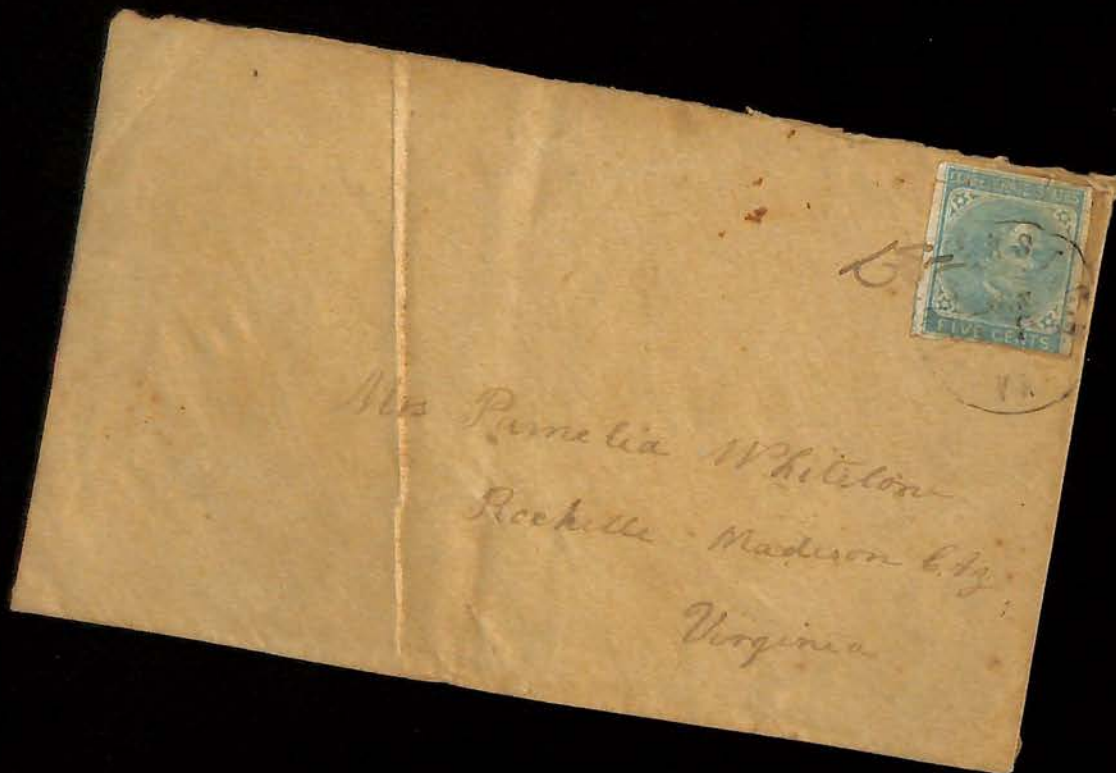 FIVE CENTS
VA
Mrs Pamelia Whitelow
Rochelle Madison Cty
Virginia